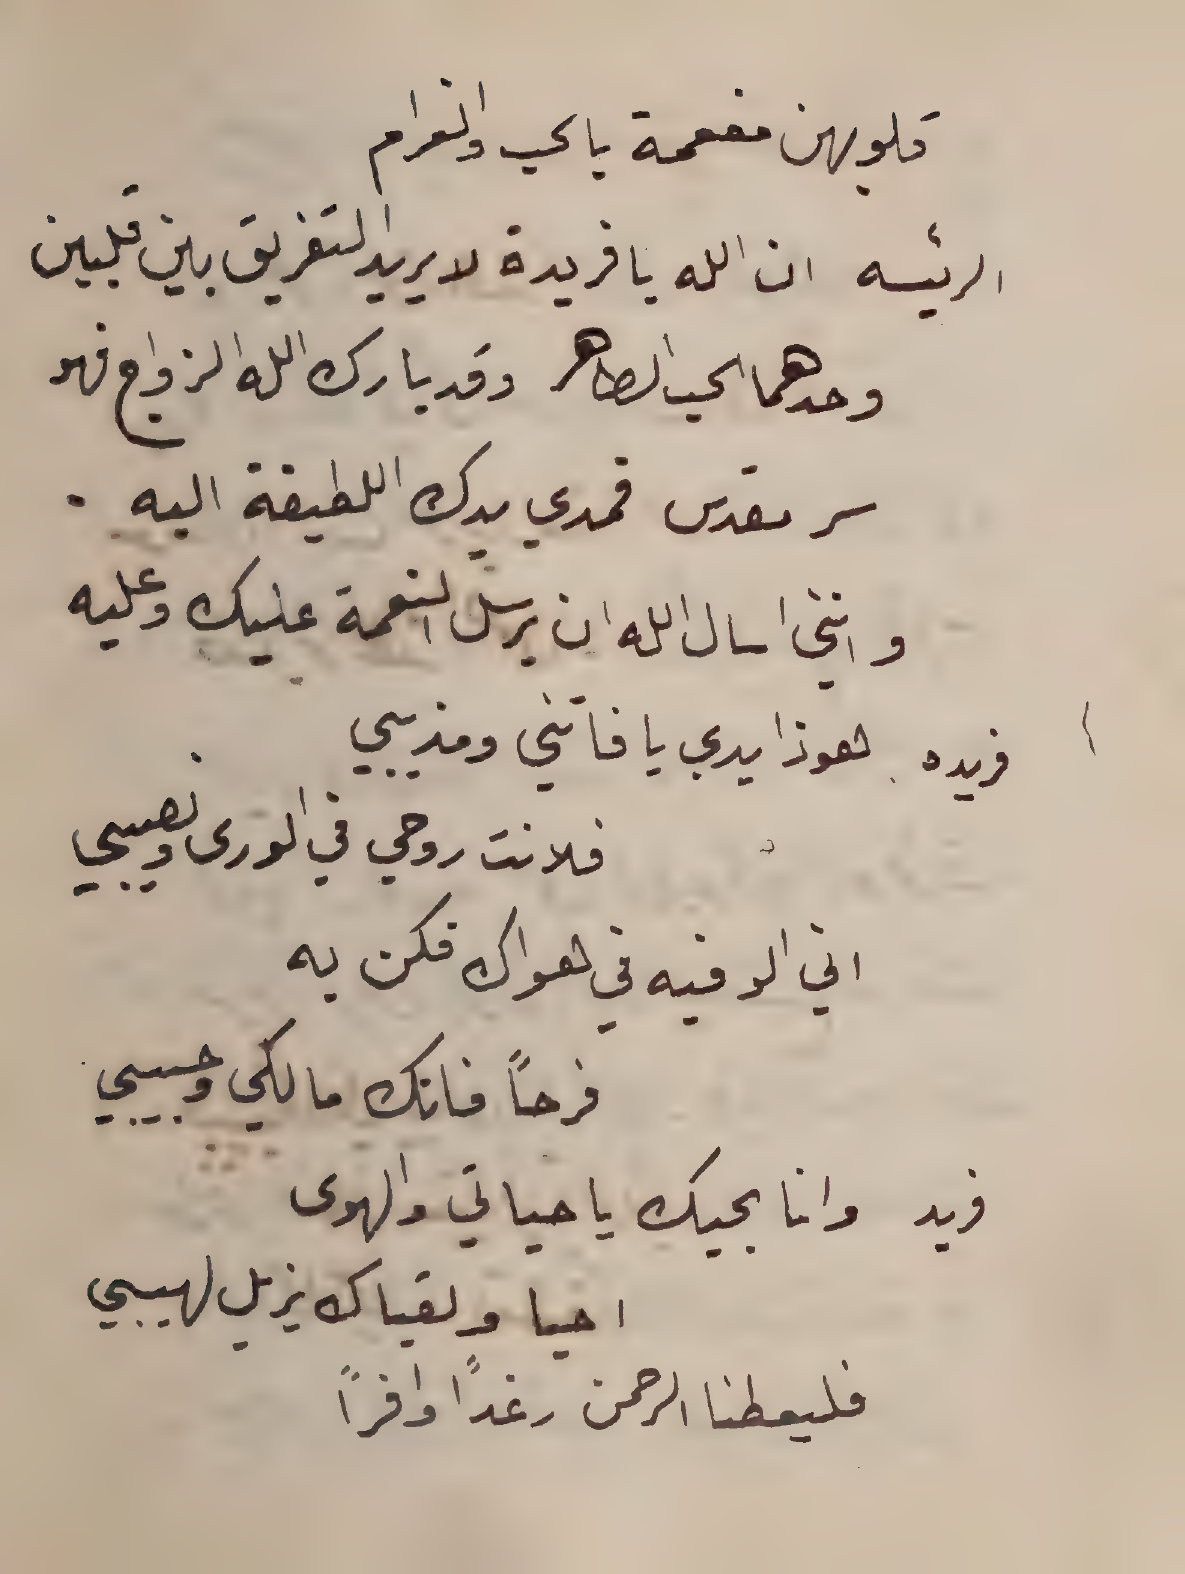 قلوبهن مفعمة بالحب والغرام
الرئيسه ان الله يا فريدة لا يريد التفريق بين قلبين
وحدهما الحب الطاهر وقد بارك الله الزواج فهو
سر مقدس فمدي يدك اللطيفة اليه .
وانني اسال الله ان يرسل النعمة عليك وعليه
فريده هوذا يدي يا فاتني ومذيبي
فلانت روحي في الورى ونصيبي
اني الوفيه في هواك فكن به
فرحاً فانك مالكي وحبيبي
فريد وانا بحبك يا حياتي والهوى
احيا ولقياك يزيل لهيبي
فليعطنا الرحمن رغداً وافراً